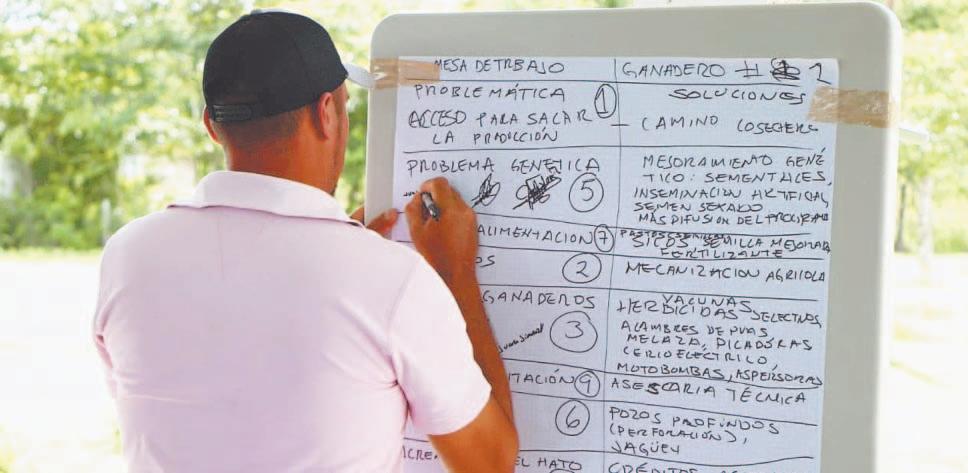 MESA DETRBAJO GANADERO # 2
PROBLEMÁTICA 1 SOLUCIONES
ACCESO PARA SACAR
LA PRODUCCIÓN - CAMINO COSECHERO
PROBLEMA GENÉTICA 5 MEJORAMIENTO GENÉ
TICO: SEMENTALES,
INSEMINACIÓN ARTIFICIAL,
SEMEN SEXADO
MAS DIFUSION DEL PROGRAMA
ALIMENTACION 7 PASTOS
SICOS SEMILLA MEJORADA
FERTILIZANTE
OS 2 MECANIZACION AGRIIOLA
GANADEROS 3 VACUNAS
HERBICIDAS SELECTIVOS
ALAMBRES DE PUAS
MELAZA, PICADORAS
CERIO ELÉCTRICO
MOTOBOMBAS, ASPERSORAS
ITACIÓN 9 ASESORIA TÉCNICA
6 POZOS PROFUNDOS
(PERFORACIÓN),
JAGÜEY
EL HATO CRÉDITOS